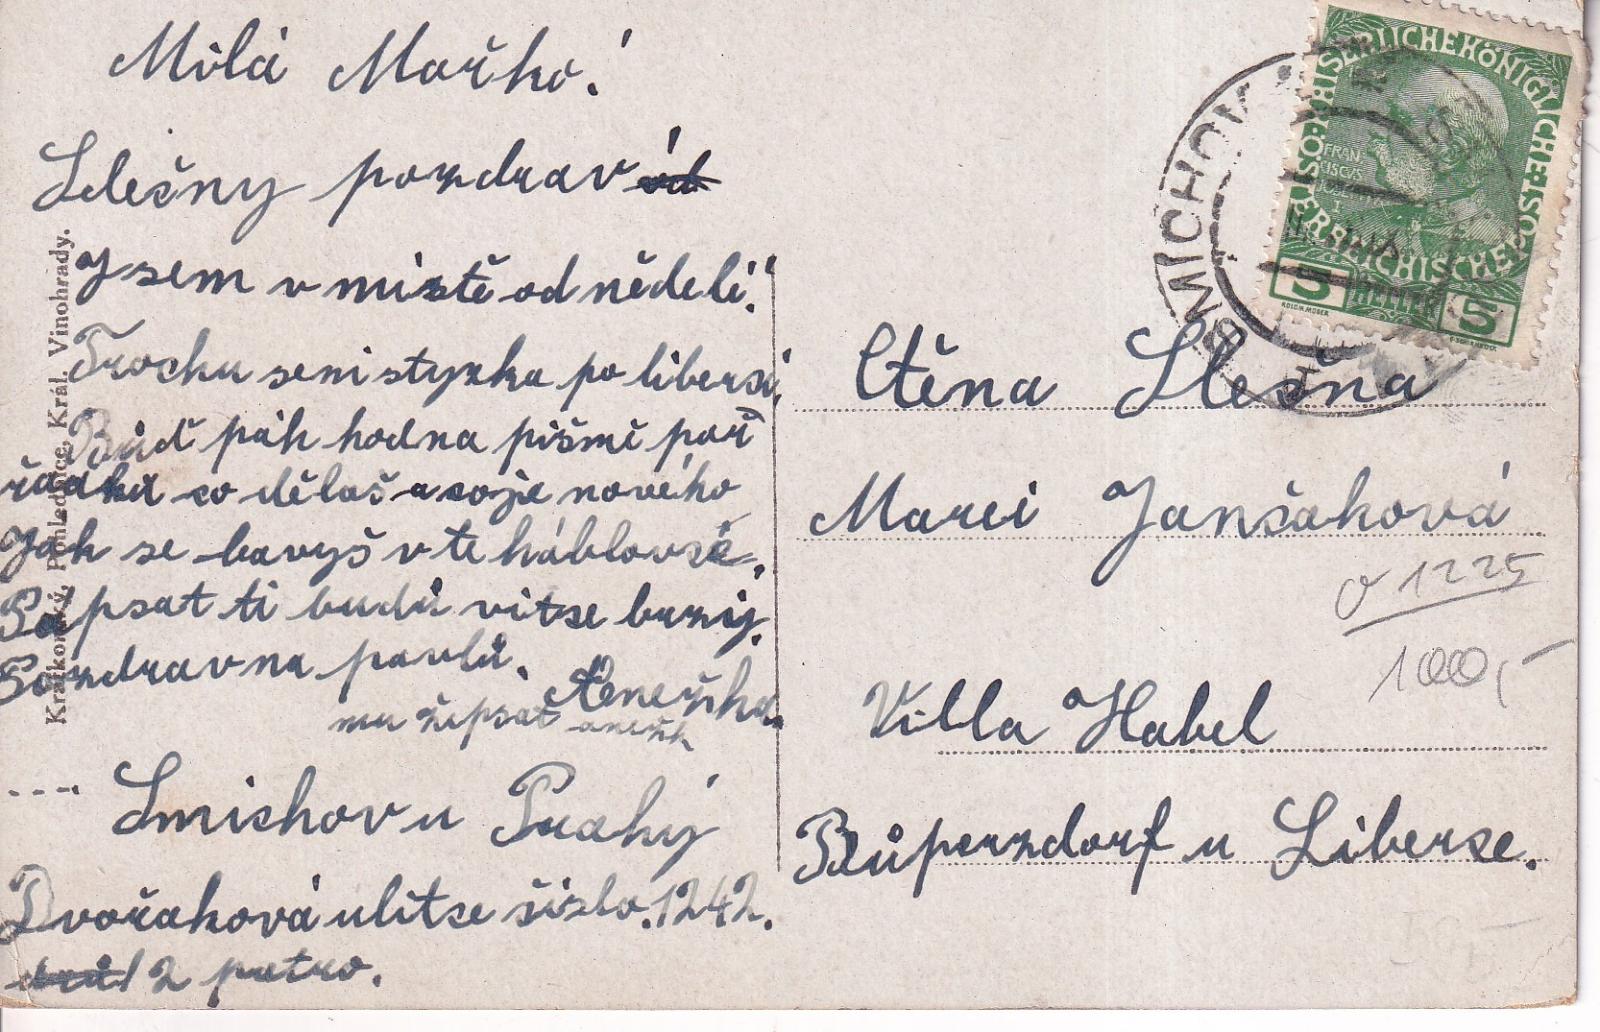 Milá Mařko!
Slešny pozdrav
Jsem v mistě od nědeli!
Trochu semi styzka po libersi.
Buď pak hodna pišmě pař
řadku co dělaš a coje nového
Jak se bavyš v te háblovsé.
Psat ti budu vitse burzij.
Pozdravna pavlů.
Aneržka
mu žepsat anežk
Smichov u Prahý
Dvořaková ulitse čizlo. 1242.
2 patro.
Králíkovský, Pohlednice, Král. Vinohrady.
SMICHOV
KAISERLICHE KÖNIGLICHE ÖSTERREICHISCHE POST
FRAN
CISCUS
I
5 HELLER 5
KOLOM. MOSER
Ctěna Slešna
Marei Jančaková
Villa Habel
Růperzdorf u Liberse.
1225
1000,-